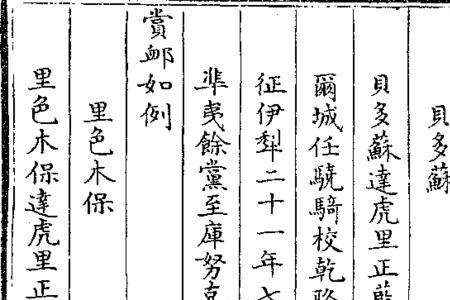 貝多蘇
貝多蘇達虎里正藍
爾城任驍騎校乾隆
征伊犁二十一年七
準夷餘黨至庫努克
賞卹如例
里色木保
里色木保達虎里正